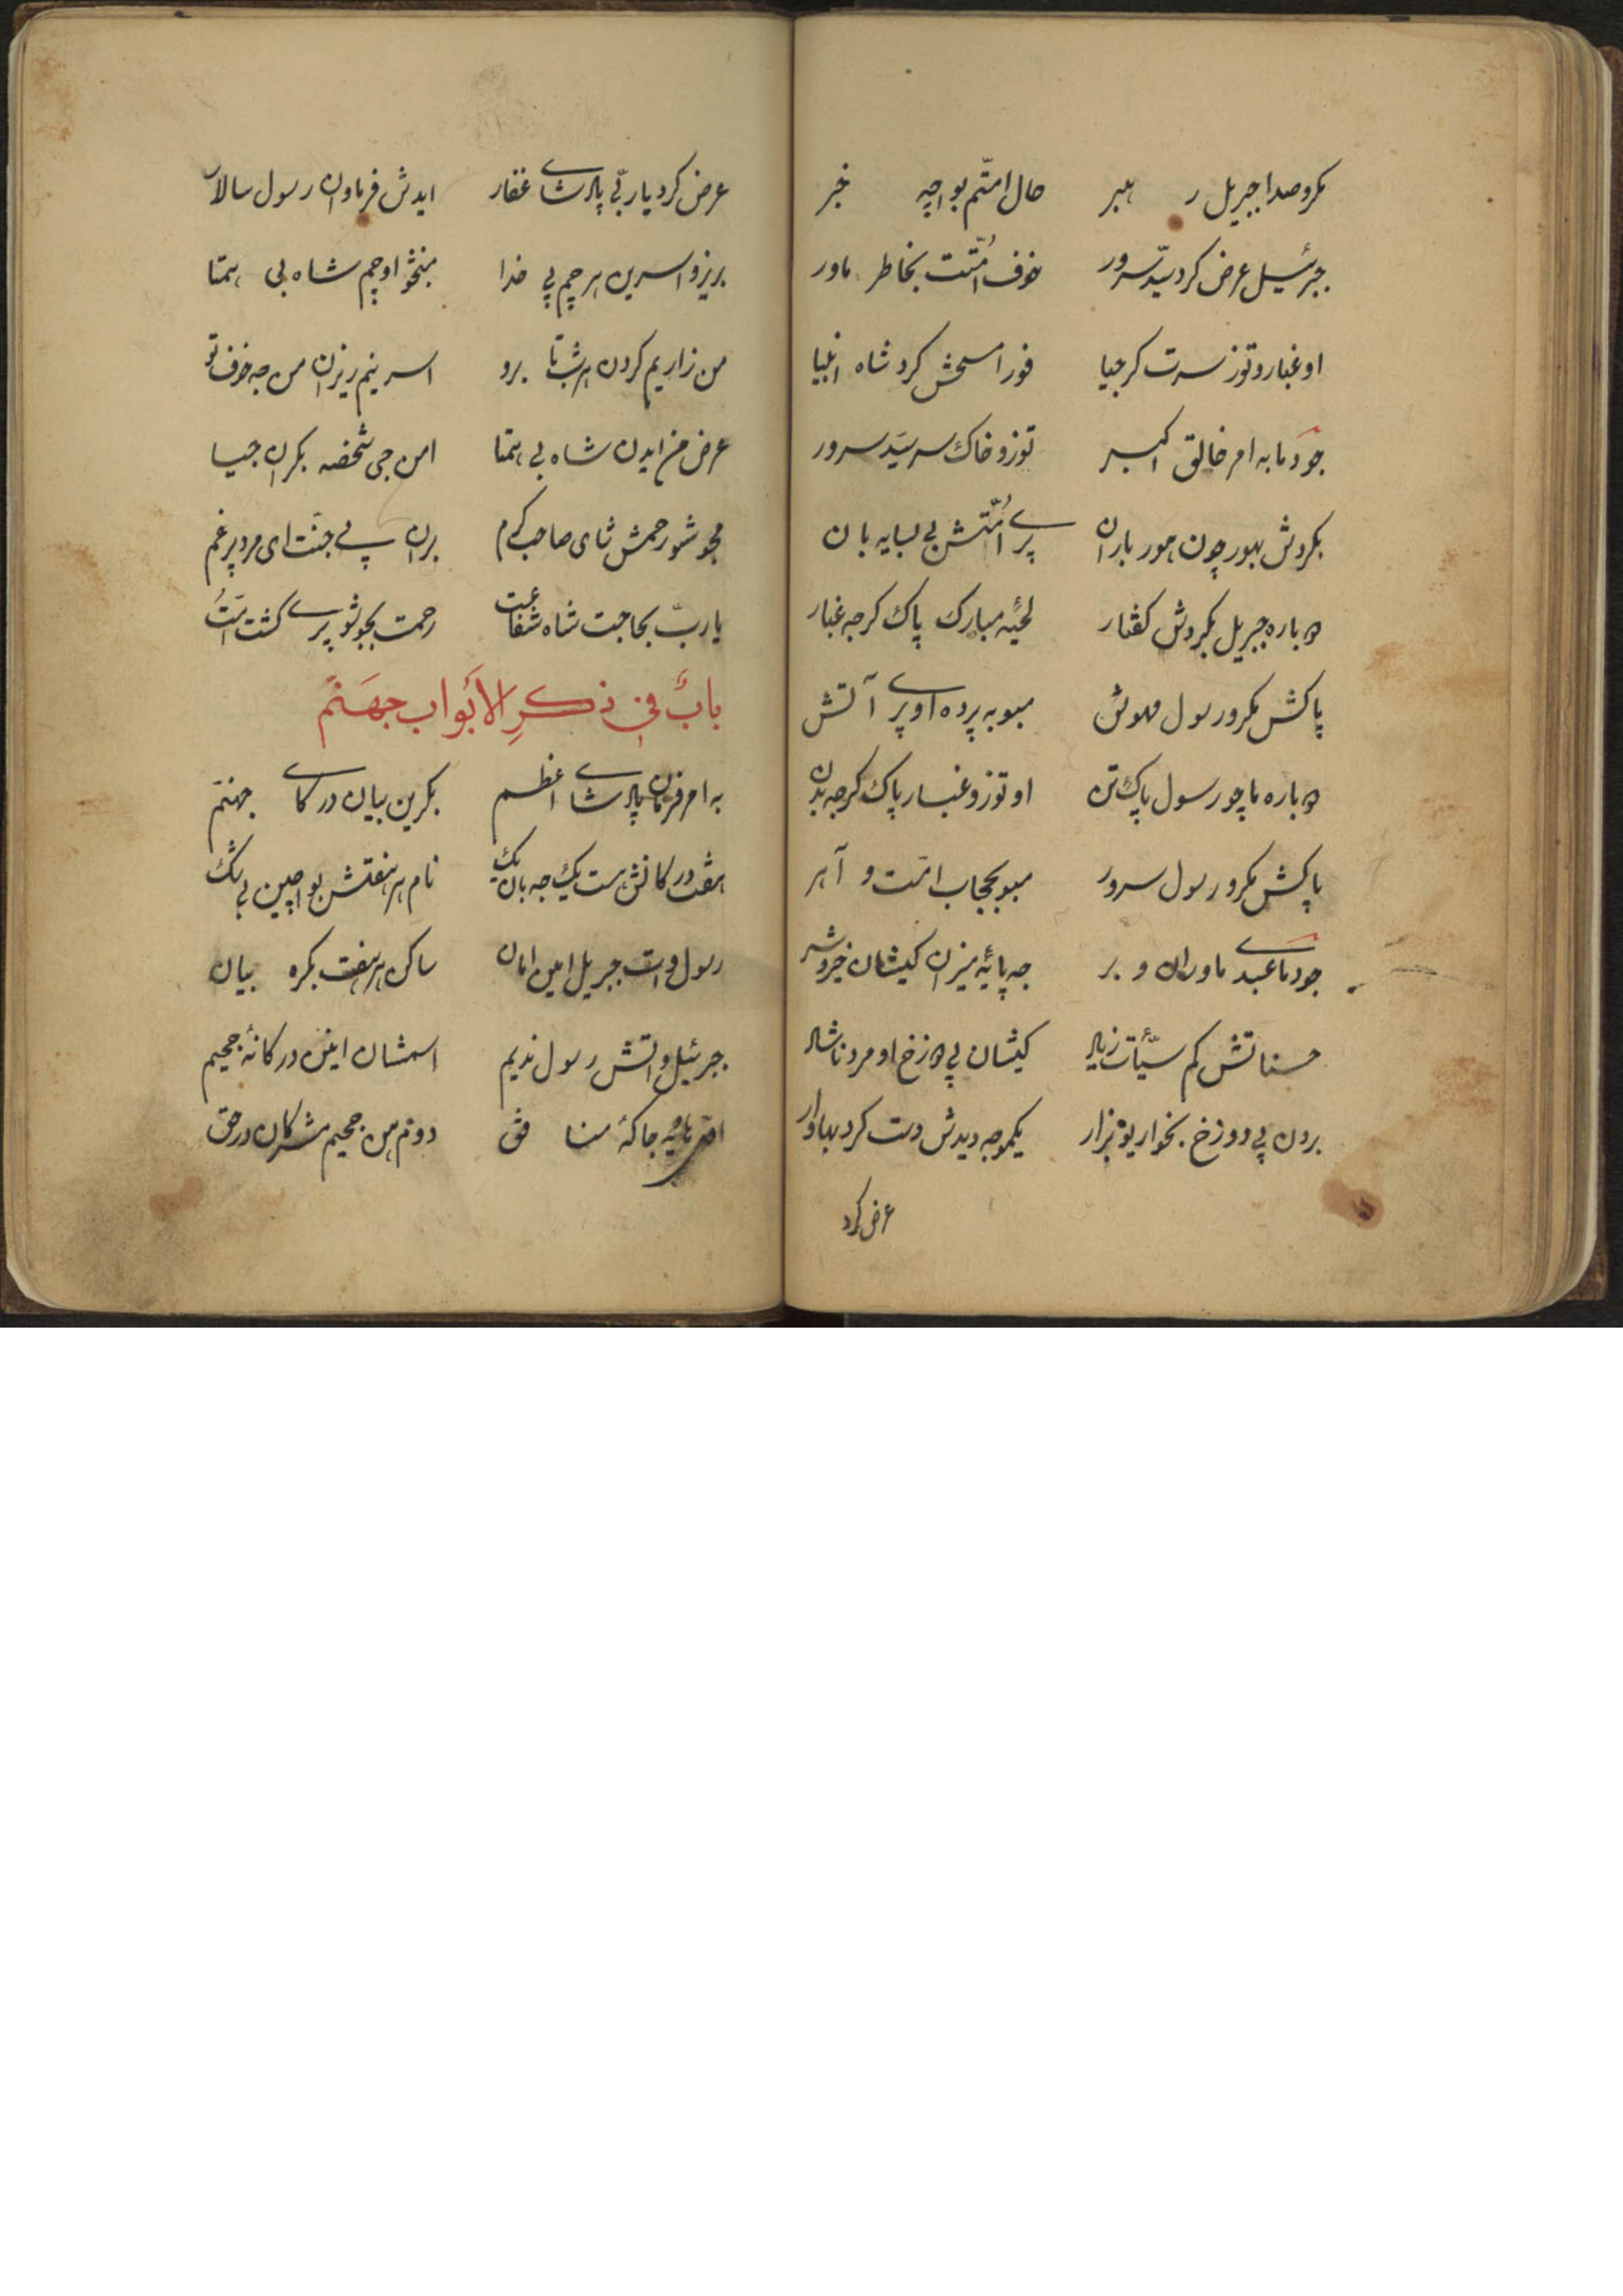 بکرو صدا جبریل ر هبر حال امتّم بواچه خبر
جبرئیل عرض کرد سیّد سرور خوف اُمّتت بخاطر ماور
او غبار و توز سرت کر جیا فورا مسحش کرد شاه انبیا
جودما به امر خالق اکبر توز و خاک سر سیّد سرور
بکروش بهور چون هور باران پرے اُمّتش بی بسایه بان
دباره جبریل بکروش کفتار لحیهٔ مبارک پاک کر جه غبار
پاکش بکرو رسول مهوش مبو به پرده او پرے آتش
دباره ماچو رسول پاک تن او توز و غبار پاک کر جه بدن
پاکش بکرو رسول سرور مبو بحجاب امّت و آهر
جودمائے عبدے ماوران و بر جه پائیه میزان کیشان خیر و شر
حسناتش کم سیّئات زیاد کیشان پی دوزخ او مرد ناشاد
بردن پی دوزخ بخواری و زار یکموجه دیدش دست کرد بهاوار
عرض کرد
عرض کرد یا ربّی پادشاے غفار ایدش فرماوان رسول سالار
بریزو اسرین هر چم پی خدا منجو او چم شاه بی همتا
من زاریم کردن هر شب تا برو اسرینم ریزان من جه خوف تو
عرض من ایدن شاه بی همتا امن جی شخصه بکران جیا
مجوشو رحمش شای صاحب کرم بران پے جنّت ای مرد پر غم
یا ربّ بحاجت شاه شفاعت رحمت بجوشو پرے کشت امّت
بابٌ فی ذکرِ الأبواب جهَنّم
به امر فرمان پادشاے اعظم بکرین بیان درکاے جهنم
هفت درکانش هست یک جه بان یک نام هر هفتش بواچین بی شک
رسول وات جبریل امین امان ساکن هر هفت بکره بیان
جبرئیل واتش رسول ندیم اسمشان اینن درکانهٔ جحیم
هاویه جاکهٔ منافق دوم هن جحیم مشرکان در حق